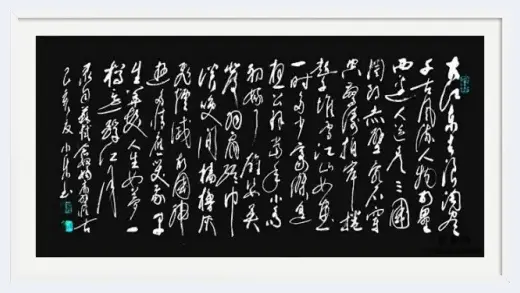 大江东去浪淘尽
千古风流人物故垒
西边人道是三国
周郎赤壁乱石穿
空惊涛拍岸卷
堆雪江山如画
一时多少豪杰遥
想公瑾当年小乔
初嫁了雄姿英
发羽扇纶巾
谈笑间樯橹灰
飞烟灭故国神
游多情应笑我早
生华发人生如梦一
樽还酹江月
苏轼念奴娇赤壁怀古
己亥夏 书